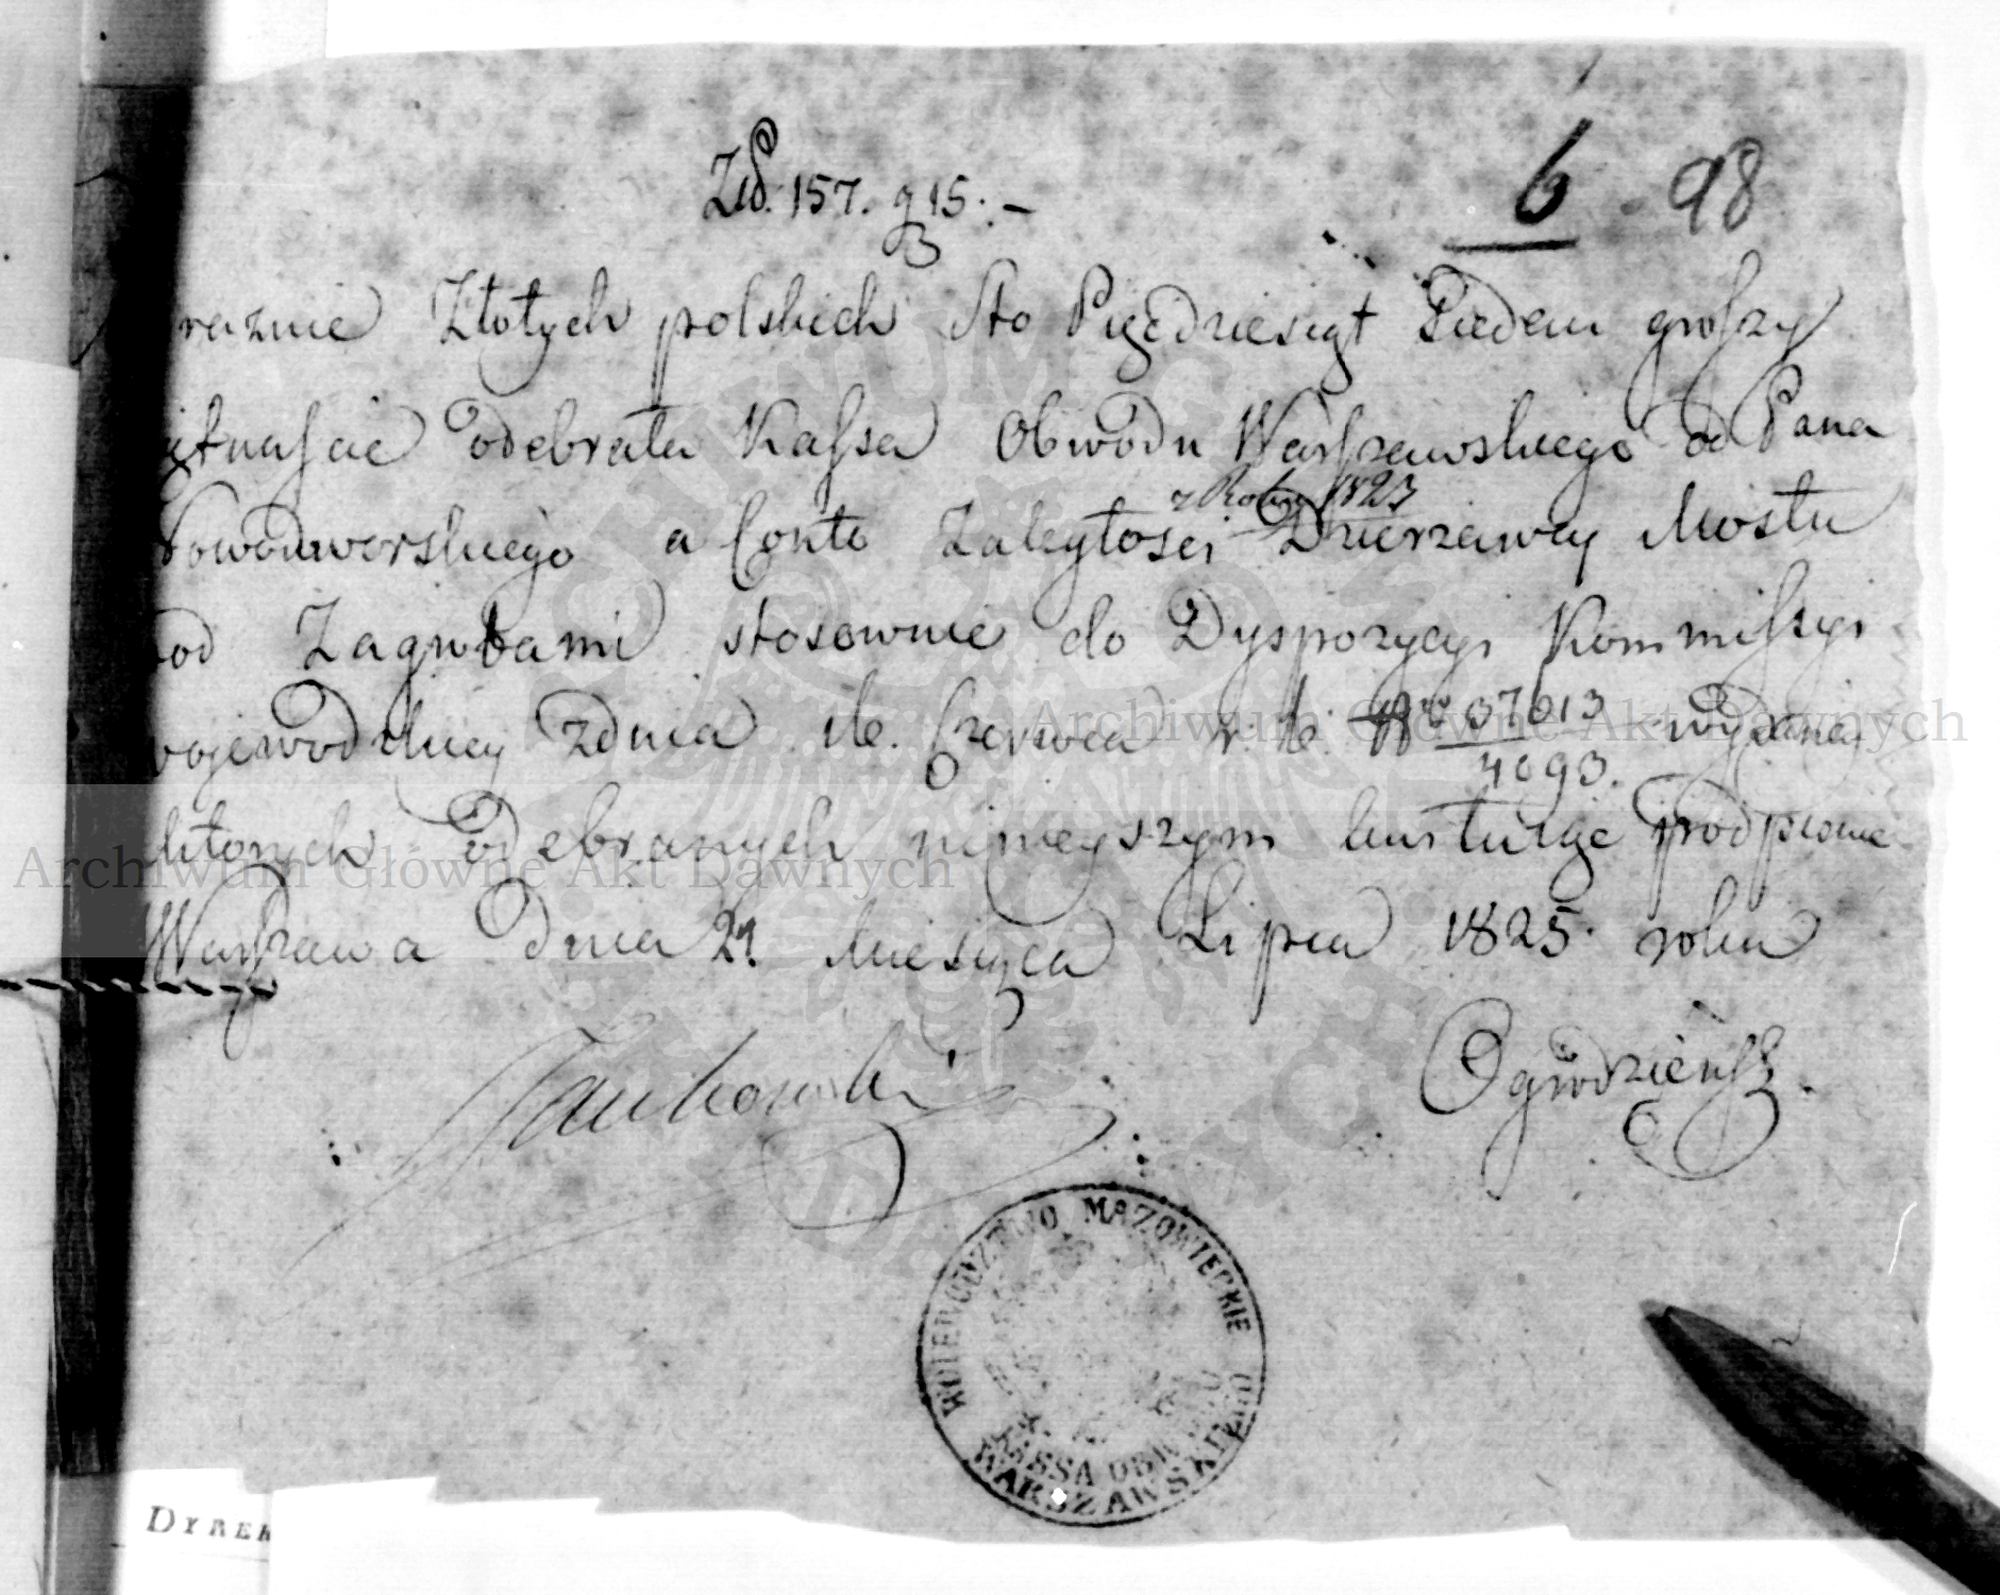 6 98
Złp. 157. g 15. –
raznie Złotych polskich Sto Pięcdziesiąt Siedem groszy
iętnascie odebrała Kassa Obwodu Warszawskiego od Pana
z Roku 1823
Nowodworskiego a Conto Zaległosci Dzierzawcy Mostu
pod Zagrobami stosownie do Dyspozycyi Kommissyi
wojewodzkiey z dnia Czerwca r. b. No 37613 wydaney
4093.
których odebranych ninieyszym kwituige podpisem
Warszawa dnia 21 Miesiąca Lipca 1825. roku
Jankowski
Ogrodzieński
WOIEWODZTWO MAZOWIECKIE
KASSA OBWODU
WARSZAWSKIEGO
DYREK
Archiwum Główne Akt Dawnych
Archiwum Główne Akt Dawnych